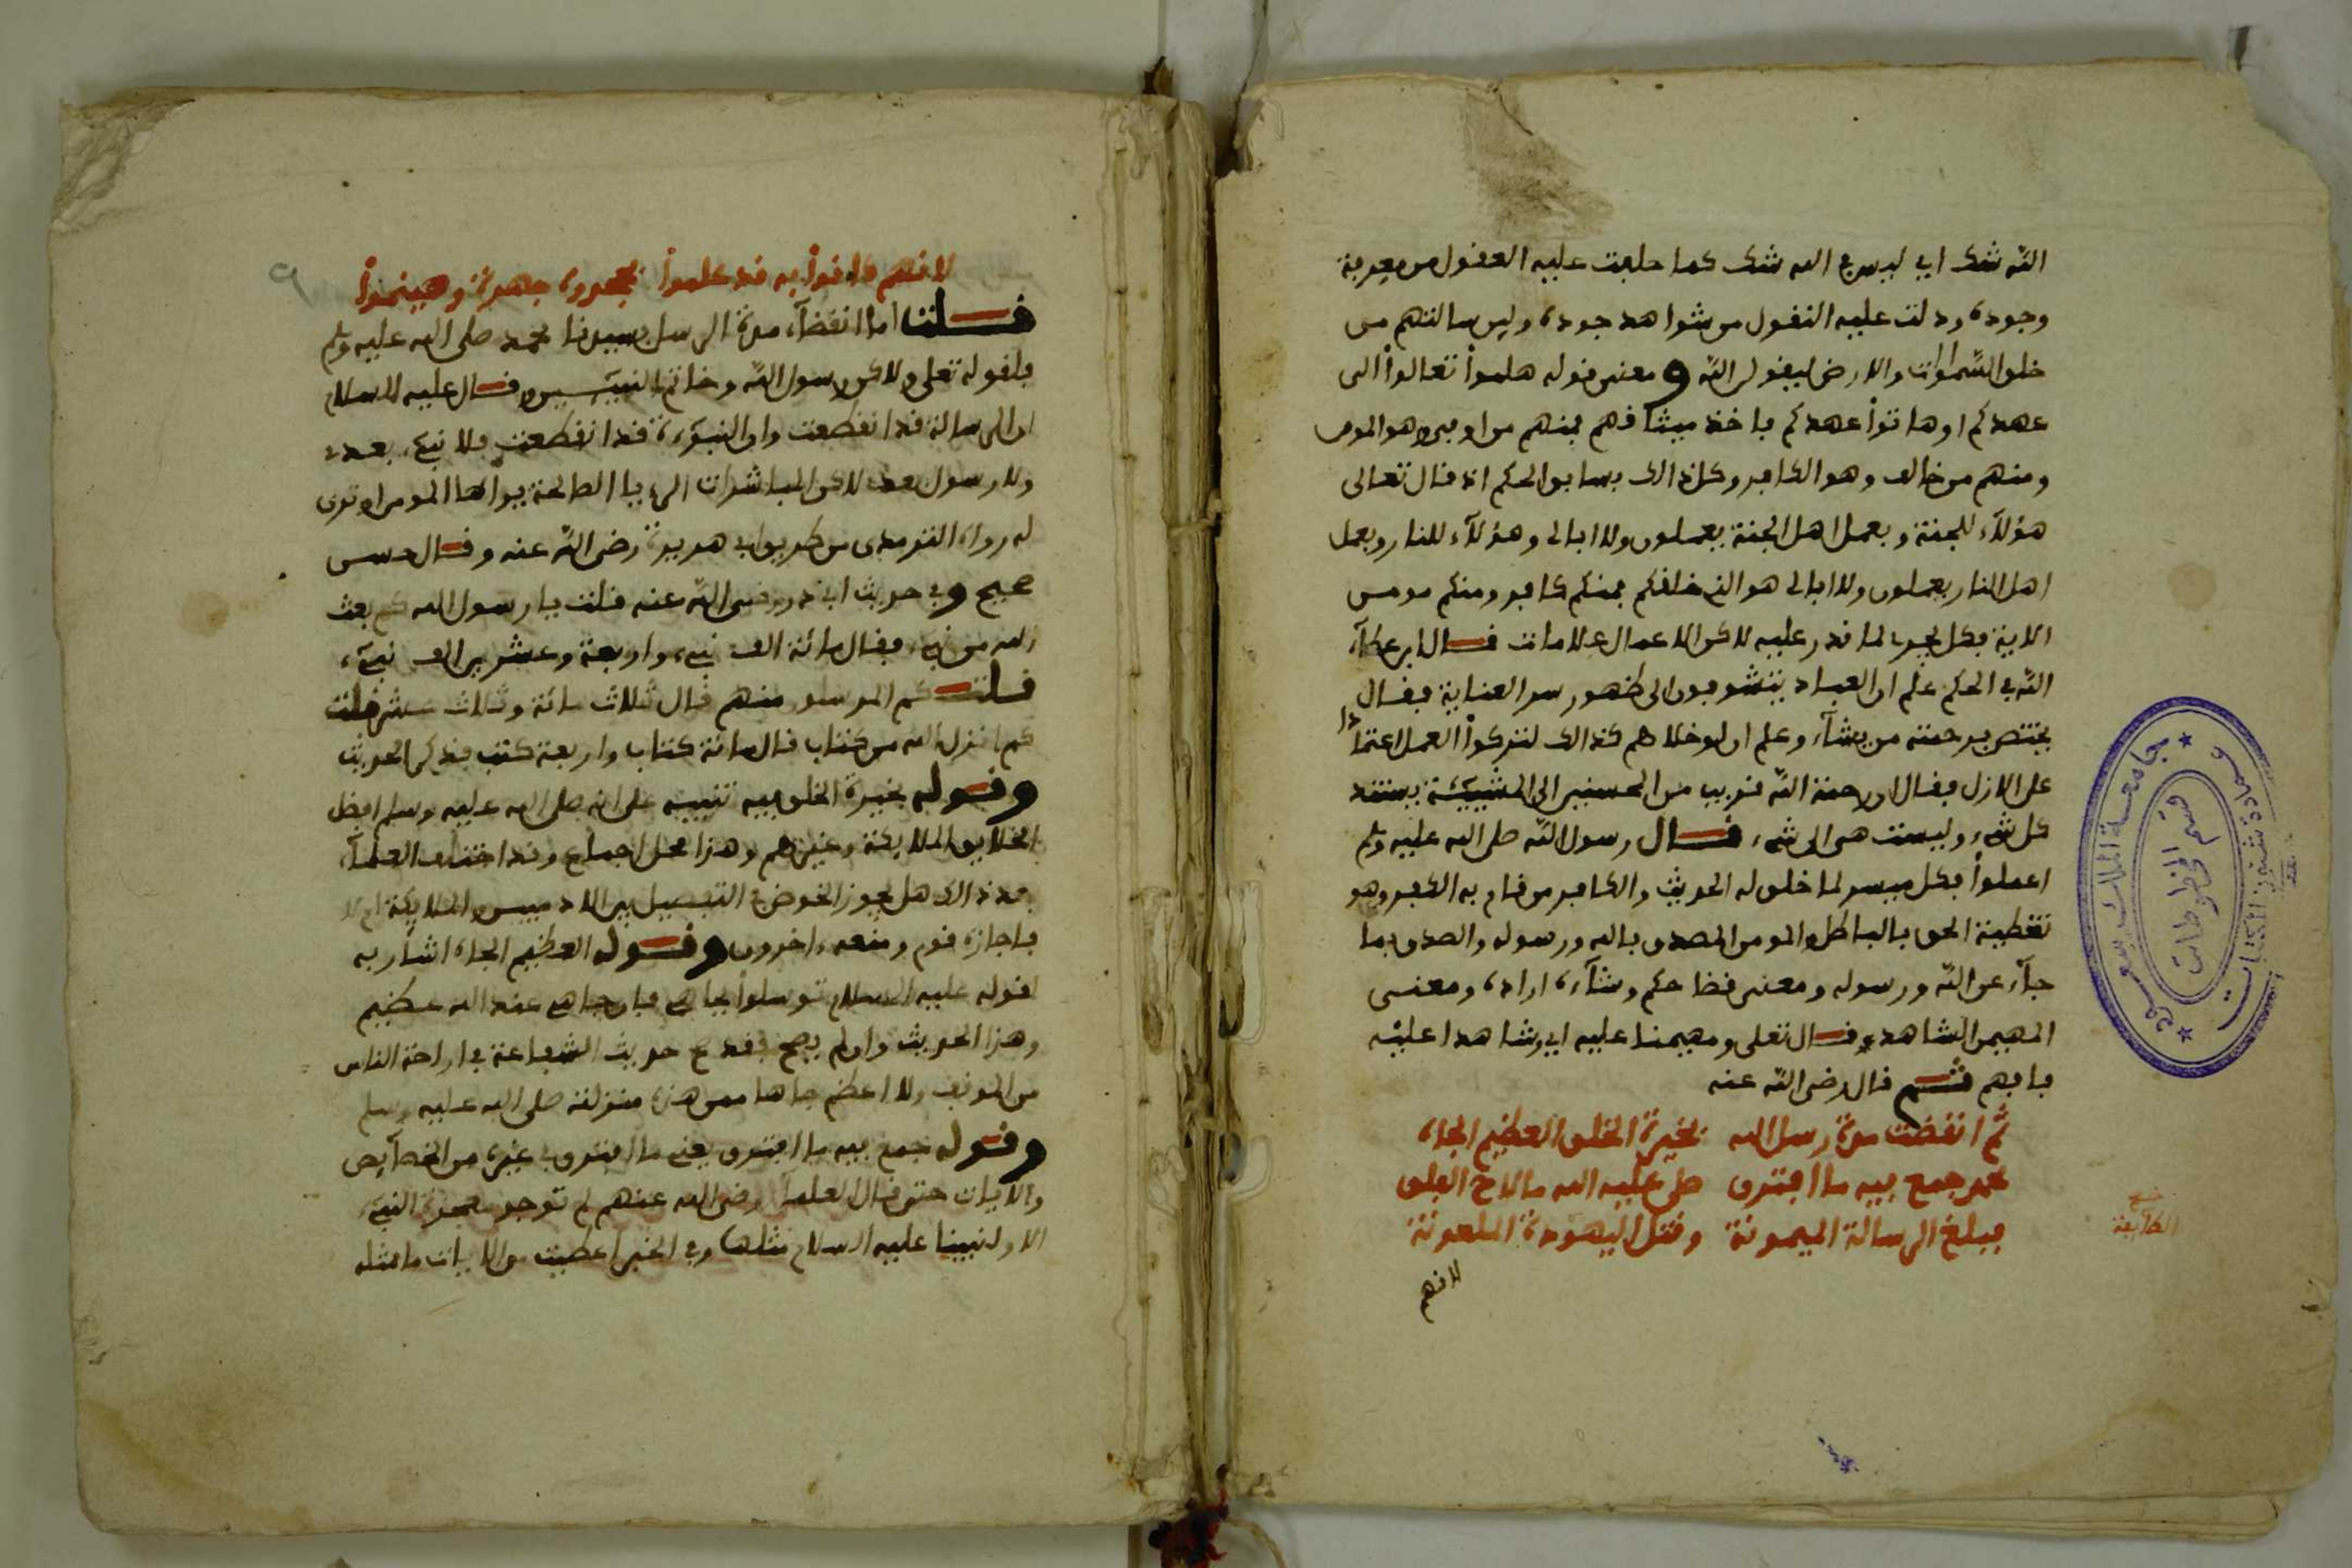 الله شك اي ليس في الله شك كما جلبت عليه العقول من معرفة
وجوده ودلت عليه النقول من شواهد جوده ولين سالتهم من
خلق السموات والارض ليقولن الله ومعنى قوله هلموا تعالوا الى
عهدكم او هاتوا عهدكم باخذ ميثاقهم فمنهم من اوفى وهو المومن
ومنهم من خالف وهو الكافر وكل ذالك بسابق الحكم اذ قال تعالى
هؤلاء للجنة وبعمل اهل الجنة يعملون ولا ابالي وهؤلاء للنار وبعمل
اهل النار يعملون ولا ابالي هو الذي خلقكم فمنكم كافر ومنكم مومن
الاية فكل يجري لما قدر عليه لاكن الاعمال علامات قال ابن عطاء
الله في الحكم علم ان العباد يتشوفون الى ظهور سر العناية فقال
يختص برحمته من يشاء وعلم ان لو خلاهم كذالك لتركوا العمل اعتمادا
على الازل فقال ان رحمة الله قريب من المحسنين الى المشيئة يستند
كل شيء وليست هي الى شيء قال رسول الله صلى الله عليه وسلم
اعملوا فكل ميسر لما خلق له الحديث والكافر من قام به الكفر وهو
تغطية الحق بالباطل والمومن المصدق بالله ورسوله والصدق بما
جاء عن الله ورسوله ومعنى قضا حكم وشاءه اراده ومعنى
المهيمن الشاهد قال تعلى ومهيمنا عليه اي شاهدا عليه
فافهم ثم قال رضي الله عنه
ثم انقضت مدة رسل الله بخيرة الخلق العظيم الجاه
محمد جمع فيه ما افترق صلى عليه الله ما لاح الفلق
فبلغ الرسالة الميمونة وقتل اليهودة الملعونة
الطايفة
لانهم
لانهم كانوا به قد علموا فجحدوه جهرة وهينموا
قلت اما انقضاء مدة الرسل بسيدنا محمد صلى الله عليه وسلم
فلقوله تعلى ولاكن رسول الله وخاتم النبيئين وقال عليه السلام
ان الرسالة قد انقطعت وان النبوءة قد انقطعت فلا نبيء بعدي
ولا رسول بعدي لاكن المباشرات الرءيا الصالحة يراها المومن او ترى
له رواه الترمذي من طريق ابي هريرة رضي الله عنه وقال حسن
صحيح وفي حديث ابي ذر رضي الله عنه قلت يا رسول الله كم بعث
الله من نبيء فقال مائة الف نبيء واربعة وعشرين الف نبيء
قلت كم المرسلون منهم قال ثلاث مائة وثلاث عشر قلت
كم انزل الله من كتاب قال مائة كتاب واربعة كتب فذكر الحديث
وقوله بخيرة الخلق فيه تنبيه على انه صلى الله عليه وسلم افضل
الخلايق الملايكة وغيرهم وهذا محل اجماع وقد اختلف العلماء
بعد ذالك هل يجوز الخوض في التفضيل بين الادميين والملايكة ام لا
فاجازه قوم ومنعه ءاخرون وقوله العظيم الجاه اشار به
لقوله عليه السلام توسلوا بجاهي فان جاهي عند الله عظيم
وهذا الحديث وان لم يصح فقد صح حديث الشفاعة في اراحة الناس
من الموقف ولا اعظم جاها ممن هذه منزلته صلى الله عليه وسلم
وقوله جمع فيه ما افترق يعني ما افترق في غيره من الخصايص
والايات حتى قال العلماء رضي الله عنهم لم توجد معجزة لنبيء
الا ولنبينا عليه السلام مثلها وفي الخبر اعطيت من الايات ما مثله
جامعة الملك سعود
عمادة شئون المكتبات
قسم المخطوطات
٩